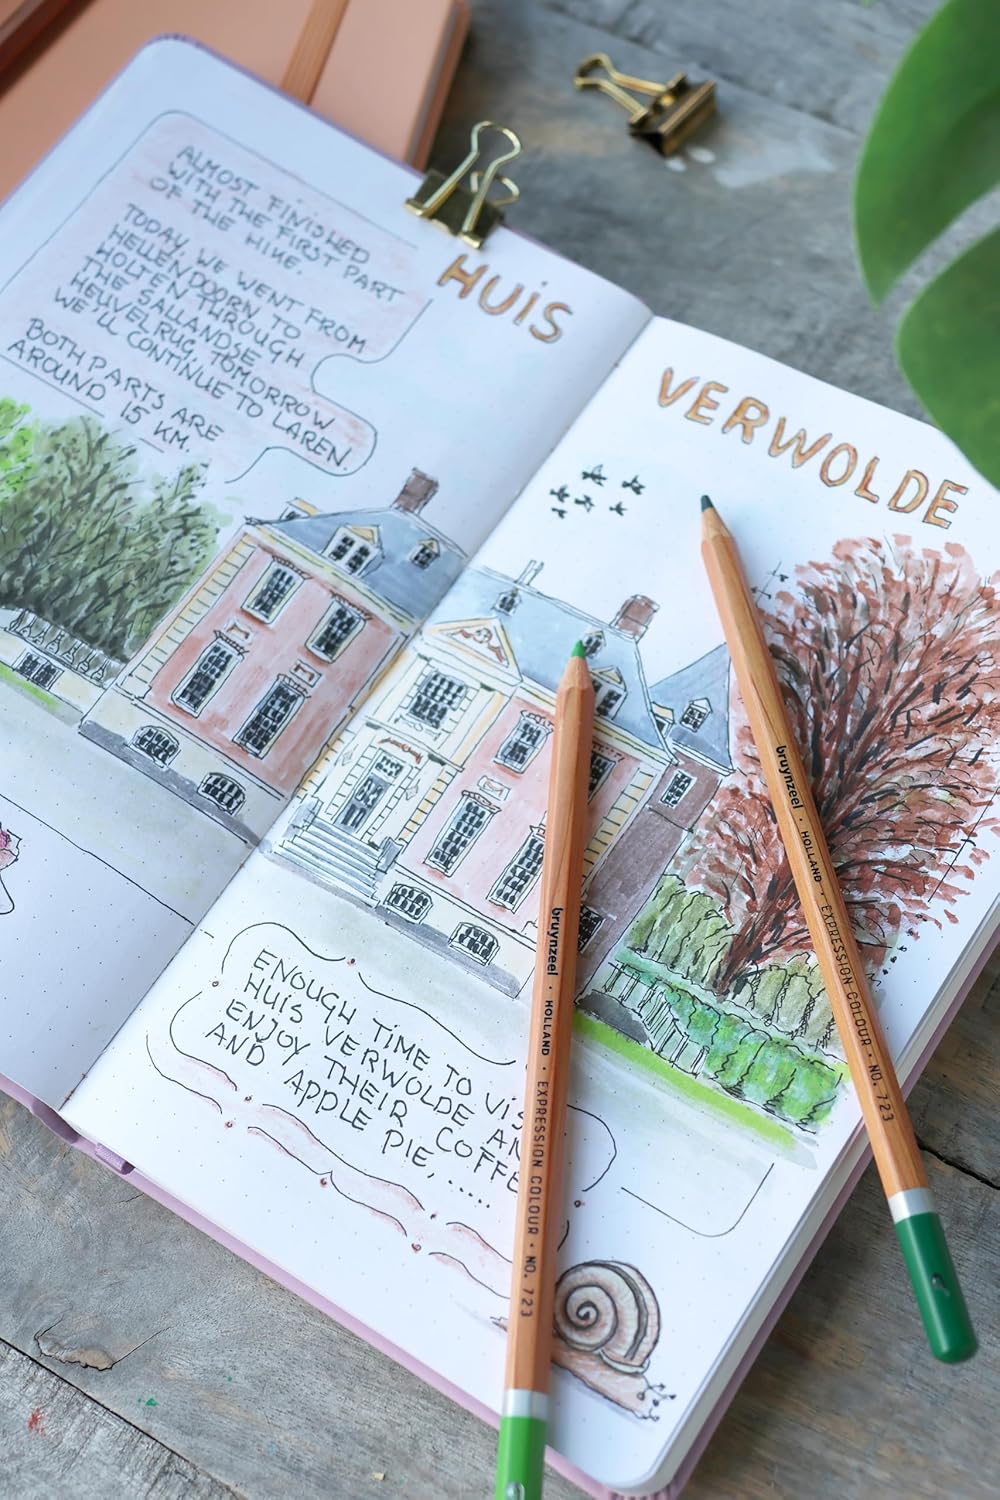 ALMOST FINISHED
WITH THE FIRST PART
OF THE HIKE.
TODAY, WE WENT FROM
HELLENDOORN TO
HOLTEN THROUGH
THE SALLANDSE
HEUVELRUG, TOMORROW
WE'LL CONTINUE TO LAREN.
BOTH PARTS ARE
AROUND 15 KM.
HUIS
VERWOLDE
ENOUGH TIME TO VIS
HUIS VERWOLDE AN
ENJOY THEIR COFFE
AND APPLE PIE,.....
bruynzeel · HOLLAND · EXPRESSION COLOUR · NO. 723
bruynzeel · HOLLAND · EXPRESSION COLOUR · NO. 723